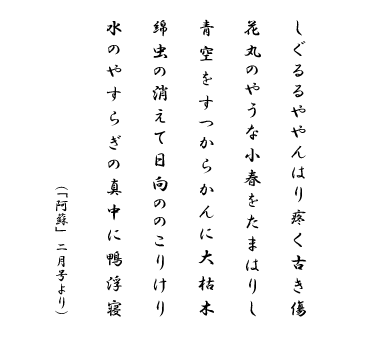 しぐるるややんはり疼く古き傷
花丸のやうな小春をたまはりし
青空をすつからかんに大枯木
綿虫の消えて日向ののこりけり
水のやすらぎの真中に鴨浮寝
(「阿蘇」二月号より)